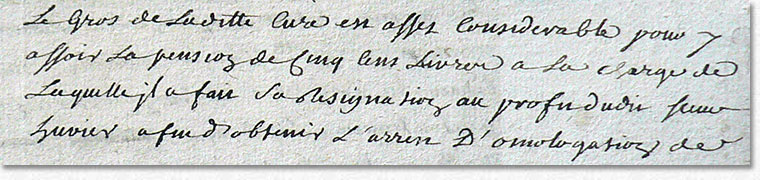 Le Gros de Laditte Cure est asses Considerable pour y
assoir La pension de Cinq Cens Livres a La Charge de
Laquelle jl a fait Sa Resignation au profit dudit sieur
huvier afin d'obtenir L'arrest D'omologation de